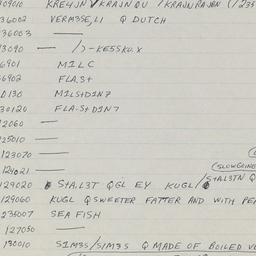 09010 KRE4JN KRAJNQU /KRAJNRAJBN (/235
36002 VERM3SE,LI Q DUTCH
36003 —
3090 — /)-KE55KU.X
6901 MILC
6902 FLA.St
0130 MILStD1N7
30120 FLA.StD1N7
2060 —
25010 —
123070 —
124021 — (SLOWGRINE
129020 StAL3T QGL EY KUGL/StAL3TN Q
129060 KUGL QSWEETER FATTER AND WITH PE
235007 SEA FISH
127050 —
130010 S1M3S/S1M3S Q MADE OF BOILED VE